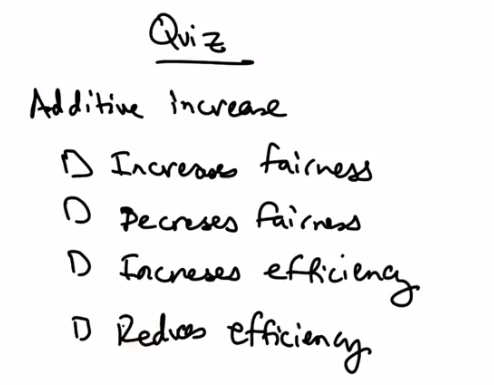 Quiz
Additive increase
Increases fairness
Decreses fairness
Increses efficiency
Reduces efficiency